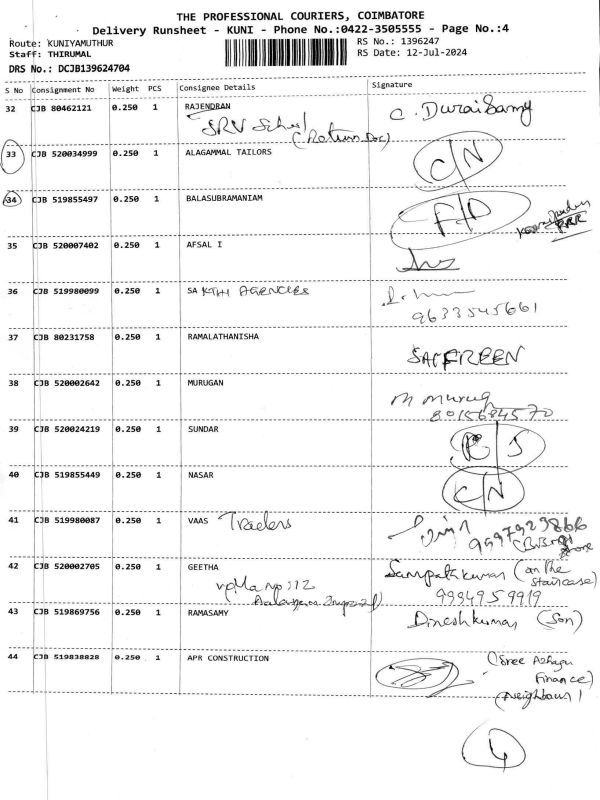 THE PROFESSIONAL COURIERS, COIMBATORE
Delivery Runsheet - KUNI - Phone No.:0422-3505555 - Page No.:4
Route: KUNIYAMUTHUR RS No.: 1396247
Staff: THIRUMAL RS Date: 12-Jul-2024
DRS No.: DCJB139624704
S No Consignment No Weight PCS Consignee Details Signature
32 CJB 80462121 0.250 1 RAJENDRAN C. Duraisamy
SRV School
(Return Doc)
33 CJB 520034999 0.250 1 ALAGAMMAL TAILORS C/N
34 CJB 519855497 0.250 1 BALASUBRAMANIAM F/D
35 CJB 520007402 0.250 1 AFSAL I
36 CJB 519980099 0.250 1 SAKTHI AGENCIES
9633545661
37 CJB 80231758 0.250 1 RAMALATHANISHA SAFREEN
38 CJB 520002642 0.250 1 MURUGAN M Murug
8015684570
39 CJB 520024219 0.250 1 SUNDAR
40 CJB 519855449 0.250 1 NASAR C/N
41 CJB 519980087 0.250 1 VAAS Traders
42 CJB 520002705 0.250 1 GEETHA Sampathkumar (on the
staircase)
9994959919
43 CJB 519869756 0.250 1 RAMASAMY Dineshkumar (Son)
44 CJB 519838828 0.250 1 APR CONSTRUCTION (Sree Azhagu
Finance)
(Neighbour)
4